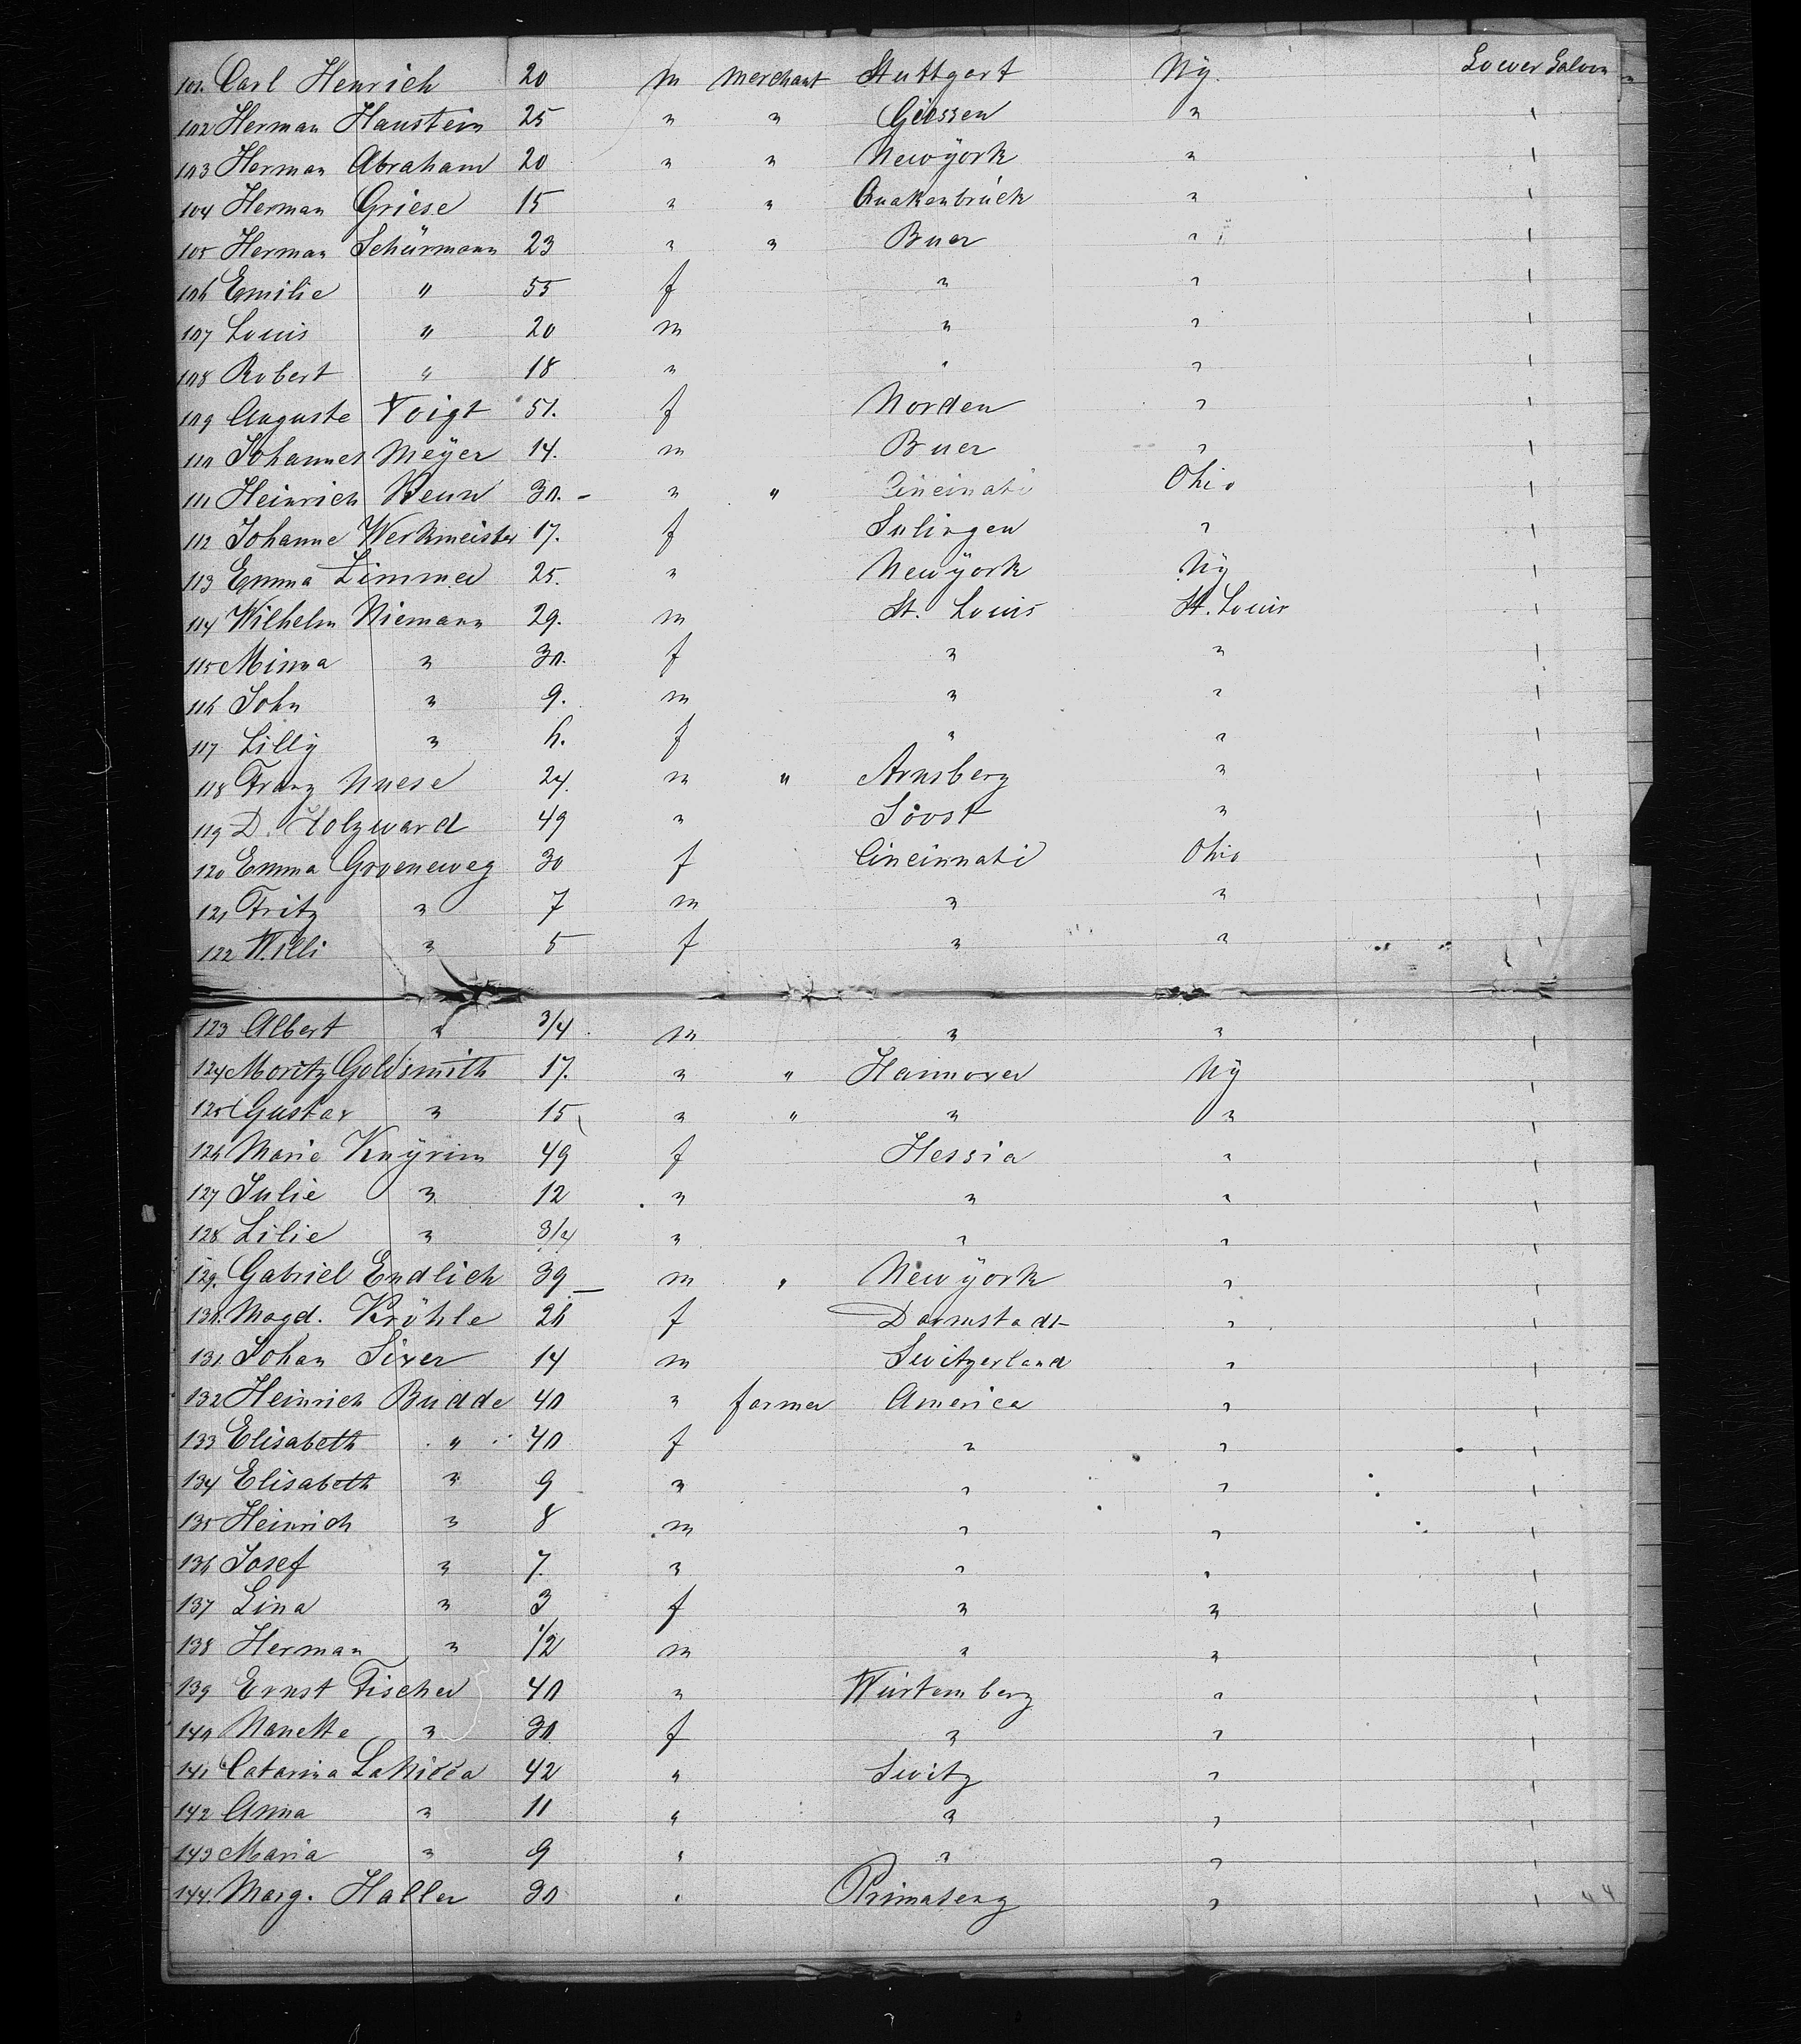 101. Carl Henrich 20 m Merchant Stuttgart Ny. Lower Saloon
102 Herman Haustein 25 " " Giessen " "
103 Herman Abraham 20 " " Newÿork " "
104 Herman Griese 15 " " Quakenbrück " "
105 Herman Schürmann 23 " " Buer " "
106 Emilie " 55 f " " "
107 Louis " 20 m " " "
108 Robert " 18 " " " "
109 Auguste Voigt 51. f Norden " "
110 Johannes Meÿer 14. m Buer " "
111 Heinrich 30. - " " Cincinati Ohio "
112 Johanne Werkmeister 17. f Sulingen " "
113 Emma Zimmer 25. " Newÿork Ny "
114 Wilhelm Niemann 29. m St. Louis St. Louis "
115 Minna " 30. f " " "
116 John " 9. m " " "
117 Lilly " 6. f " " "
118 Franz 24. m " Arnsberg " "
119 D. Holzward 49 " Soost " "
120 Emma Groeneweg 30 f Cincinnati Ohio "
121 Fritz " 7 m " " "
122 Willi " 5 f " " "
123 Albert " 3/4 m " " "
124 Moritz Goldsmith 17. " " Hannover Ny "
125 Gustav " 15 " " " " "
126 Marie Knÿrim 49 f Hessia " "
127 Julie " 12 " " " "
128 Lilie " 3/4 " " " "
129. Gabriel Endlich 39 - m " Newÿork " "
130. Magd. Kröhle 26 f Darmstadt " "
131 Johan 14 m Switzerland " "
132 Heinrich Budde 40 " farmer America " "
133 Elisabeth " 40 f " " "
134 Elisabeth " 9 " " " "
135 Heinrich " 8 m " " "
136 Josef " 7. " " " "
137 Lina " 3 f " " "
138 Herman " 1/2 m " " "
139 Ernst Fischer 40 " Würtemberg " "
140 Nanette " 30 f " " "
141 Catarina 42 " Switz " "
142 Anna " 11 " " " "
143 Maria " 9 " " " "
144. Marg. Haller 30 " " "
44